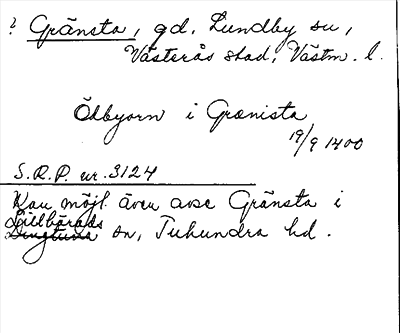 ? Gränsta, gd, Lundby sn,
Västerås stad, Västm. l.
Ödbyorn i Grænista
19/9 1400
S.R.P. nr. 3124
Kan möjl. även avse Gränsta i
Lillhärads
Dingtuna sn, Tuhundra hd.